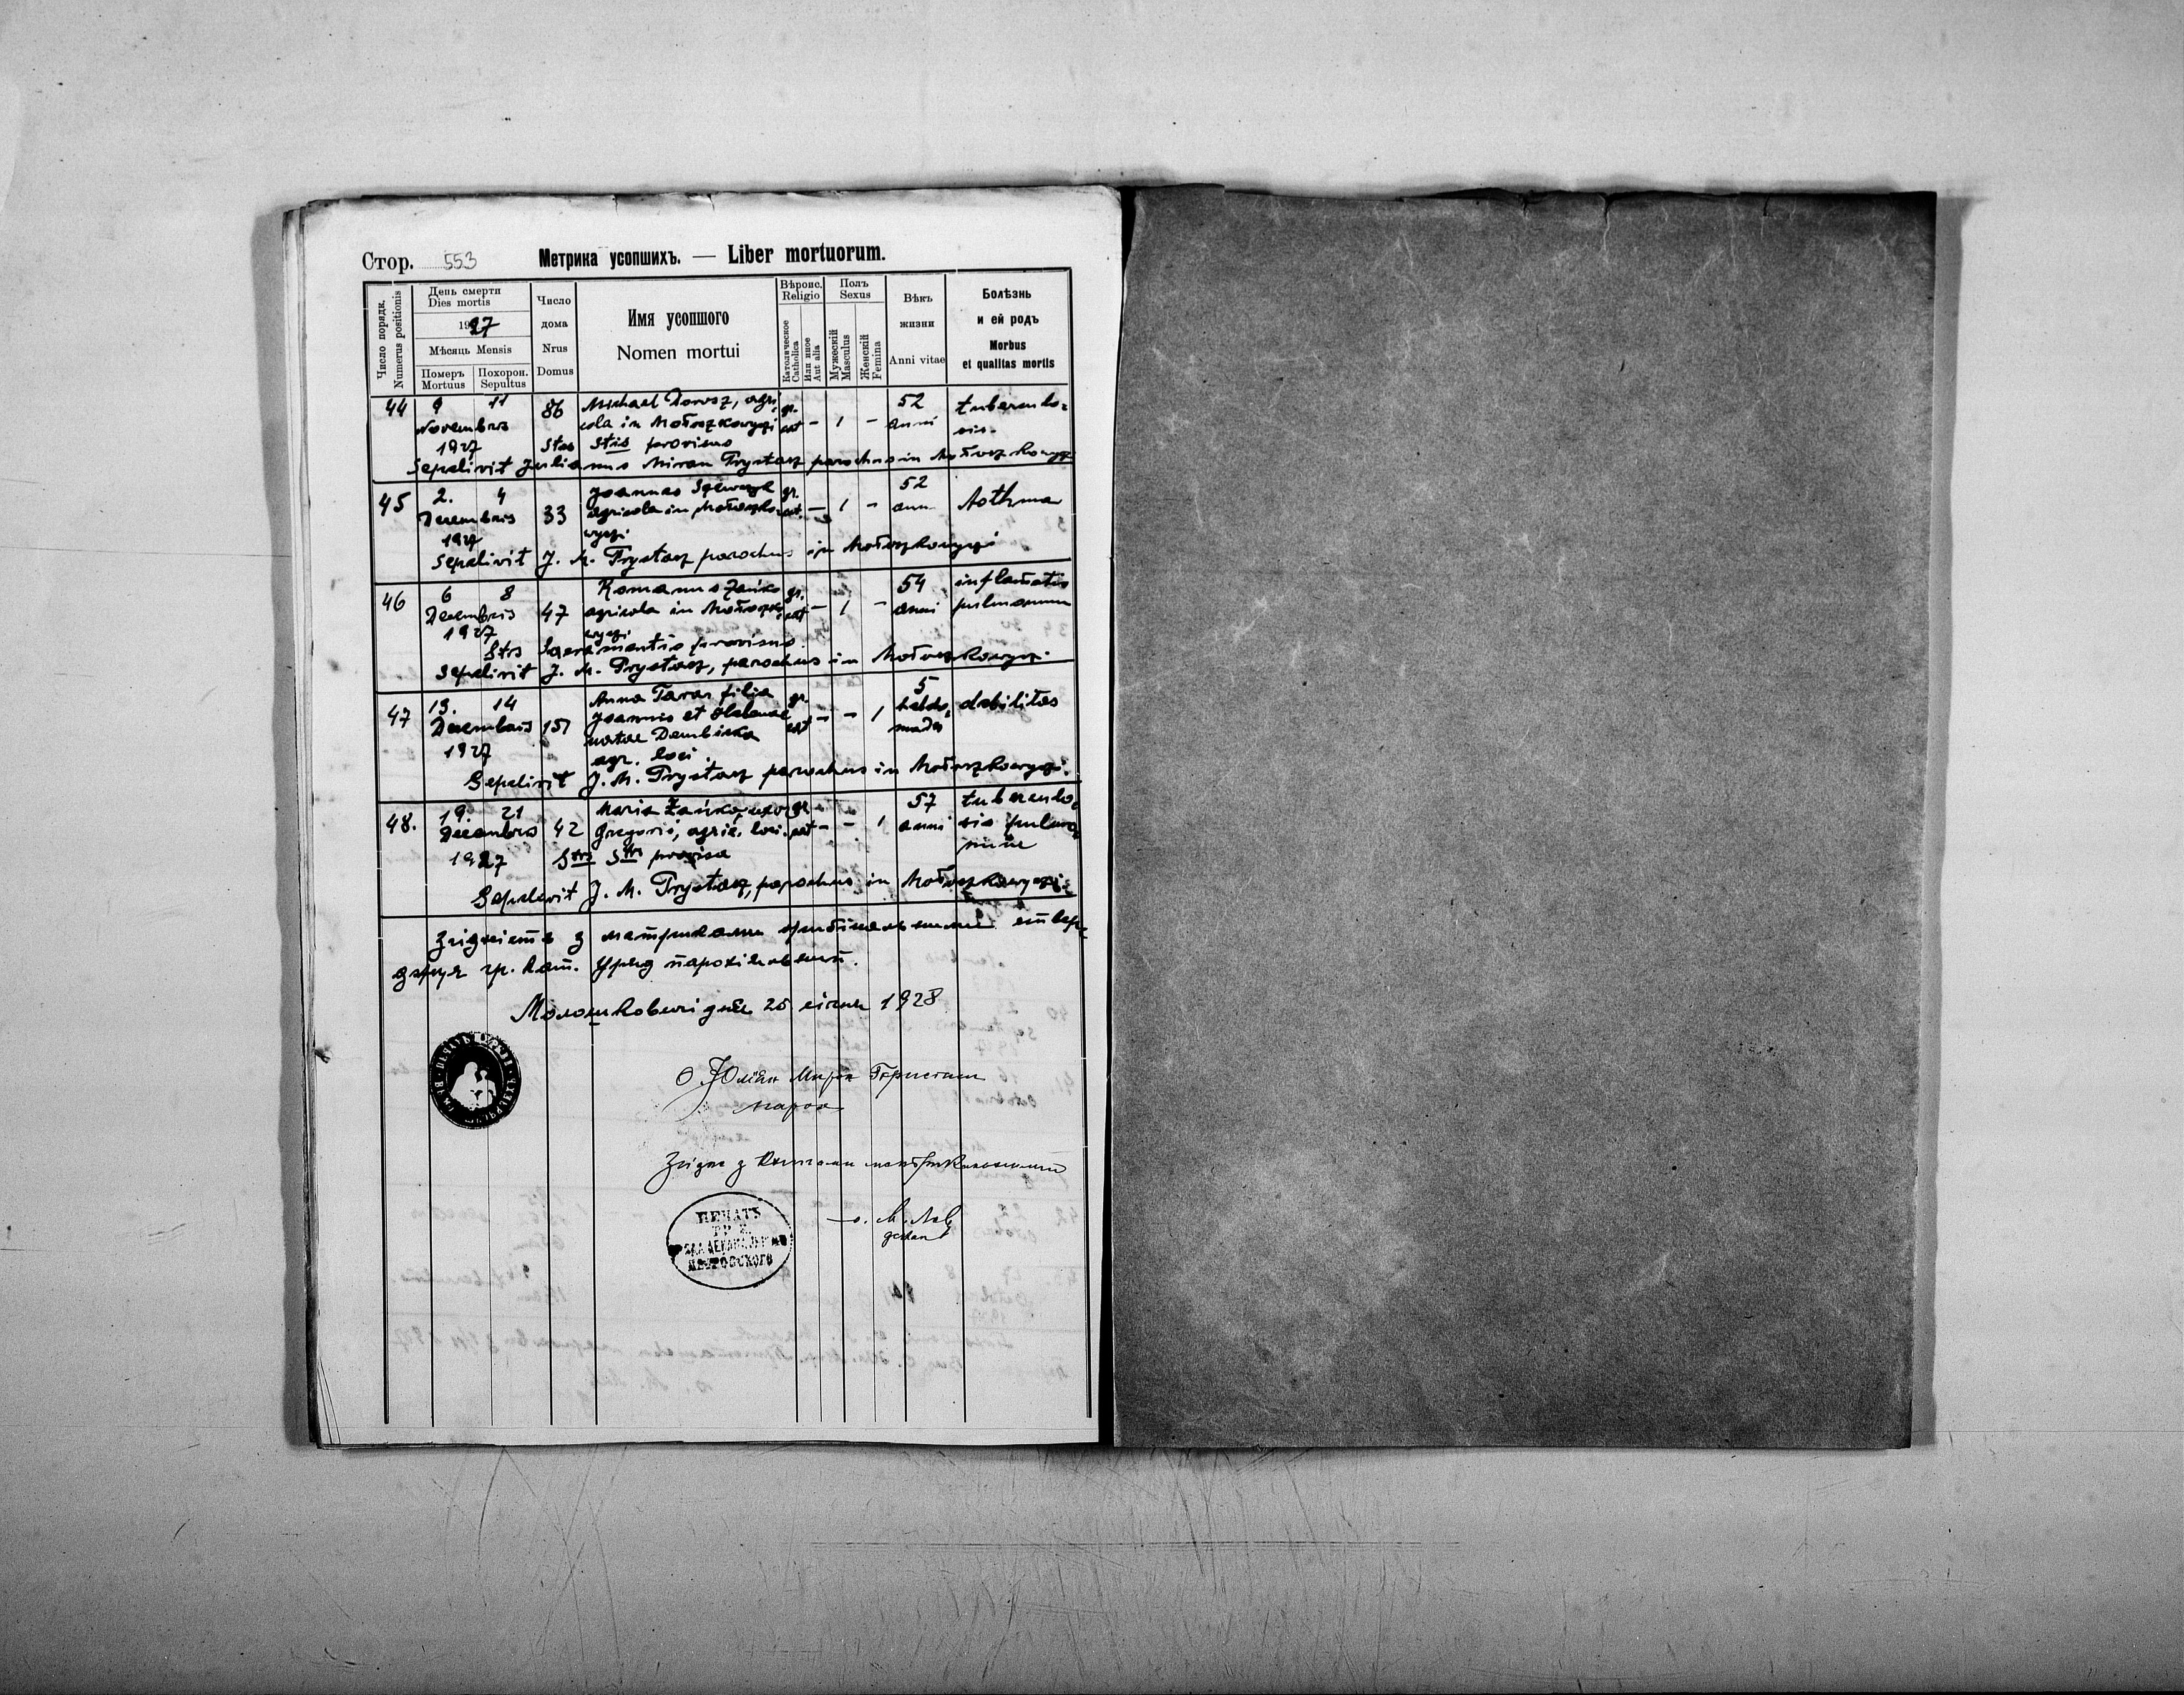 Стор. 553 Метрика усопшихъ. — Liber mortuorum.
Число порядк. Numerus positionis
День смерти Dies mortis
1927
Мѣсяць Mensis
Померъ Mortuus
Похорон. Sepultus
Число дома Nrus Domus
Имя усопшого Nomen mortui
Вѣроис. Religio
Католическое Catholica
Или иное Aut alia
Полъ Sexus
Мужескій Masculus
Женскій Femina
Вѣкъ жизни Anni vitae
Болѣзнь и ей родъ Morbus et qualitas mortis
44 9 11 86 Michael Dorosz, agri gr. 52 tuberculo=
Novembris cola in Mołoszkowyczi cat – 1 – anni sis.
1927 Stes Stis provisus
Sepelivit Julianus Miron Prystasz parochus in Mołoszkowycz
45 2. 4 33 Joannes gr. 52 Asthma
Decembris agricola in Mołoszko= cat. – 1 – ann.
1927 wyczi
Sepelivit J. M. Prystasz parochus in Mołoszkowyczi
46 6 8 47 Romanus Zańko gr. 54 inflamatio
Decembris agricola in Mołoszko cat – 1 – anni pulmonum
1927 wyczi
Stis Sacramentis provisus
Sepelivit J. M. Prystasz, parochus in Mołoszkowyczi
47 13. 14 151 Anna Taras filia gr. 5 debilitas
Decembris Joannis et Helenae cat – – 1 hebdo=
1927 natae Dembicka mades
agr. loci.
Sepelivit J. M. Prystasz parochus in Mołoszkowyczi.
48. 19. 21 42 Maria Zańko, uxor gr. 57 tuberculo=
Decembris Gregorii, agric. loci. cat – – 1 anni sis pulmo=
1927 Stis Stis provisa
Sepelivit J. M. Prystasz, parochus in Mołoszkowyczi
з матрикальними ствер=
джує гр. кат. Уряд парохіяльний.
Молошковичі дня 25 січня 1928
О Юліян Мирон Присташ
парох
Згідне з книгами метрикальними
о. М.
декан
ПЕЧАТЬ
ЯВОРОВСКОГО